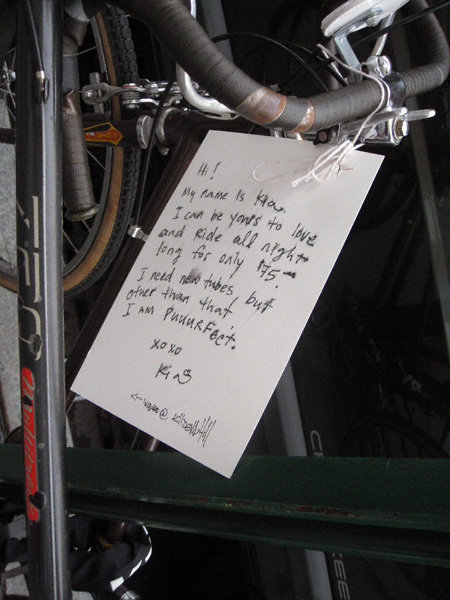 Hi!
My name is Kia.
I can be yours to love
and ride all night
long for only $75.-
I need new tubes but
other than that,
I am PUUURFECT.
xoxo
Kia